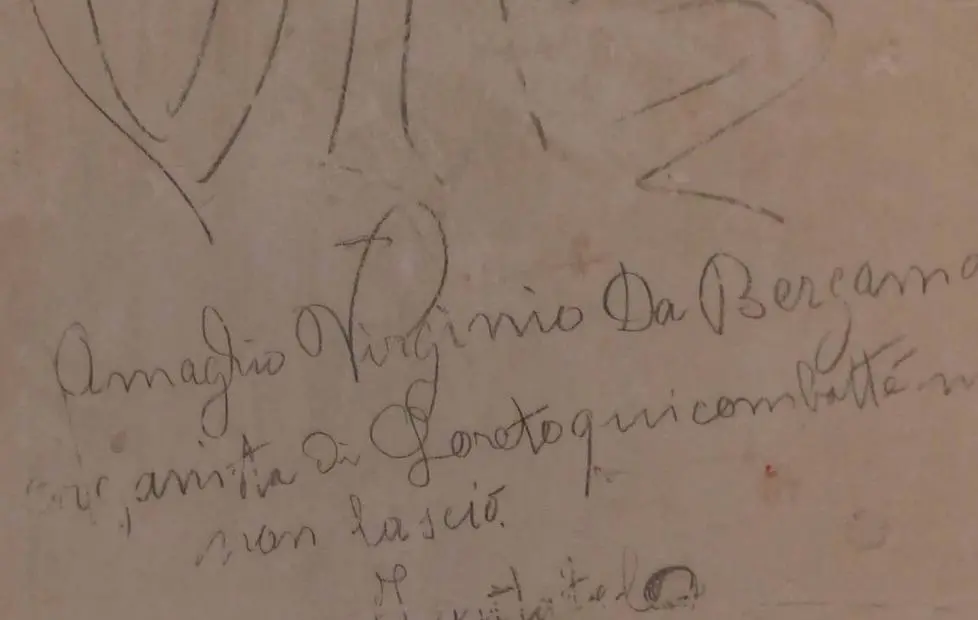 Amaglio Virginio Da Bergamo
di Loreto qui combatté
non lasciò.